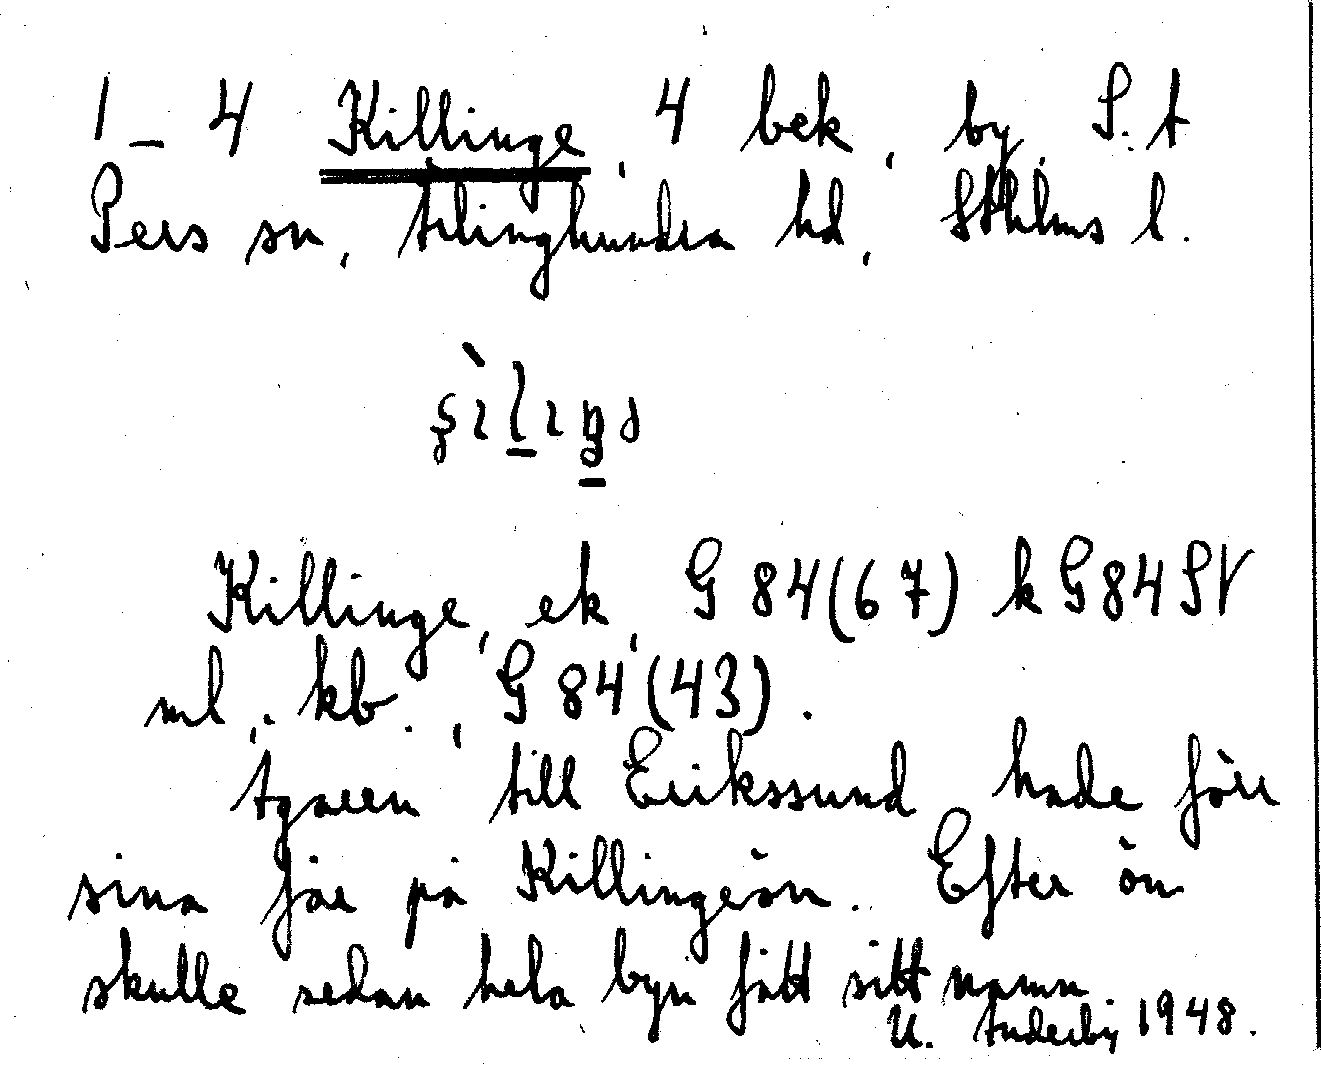 1 – 4 Killinge, 4 bek, by, S.t
Pers sn, Ärlinghundra hd, Sthlms l.
Killinge, ek, G 84(67) k G84 SV
ml.; kb., G 84(43).
Ägaren till Erikssund hade förr
sina får på Killingeön. Efter ön
skulle sedan hela byn fått sitt namn
U. 1948.